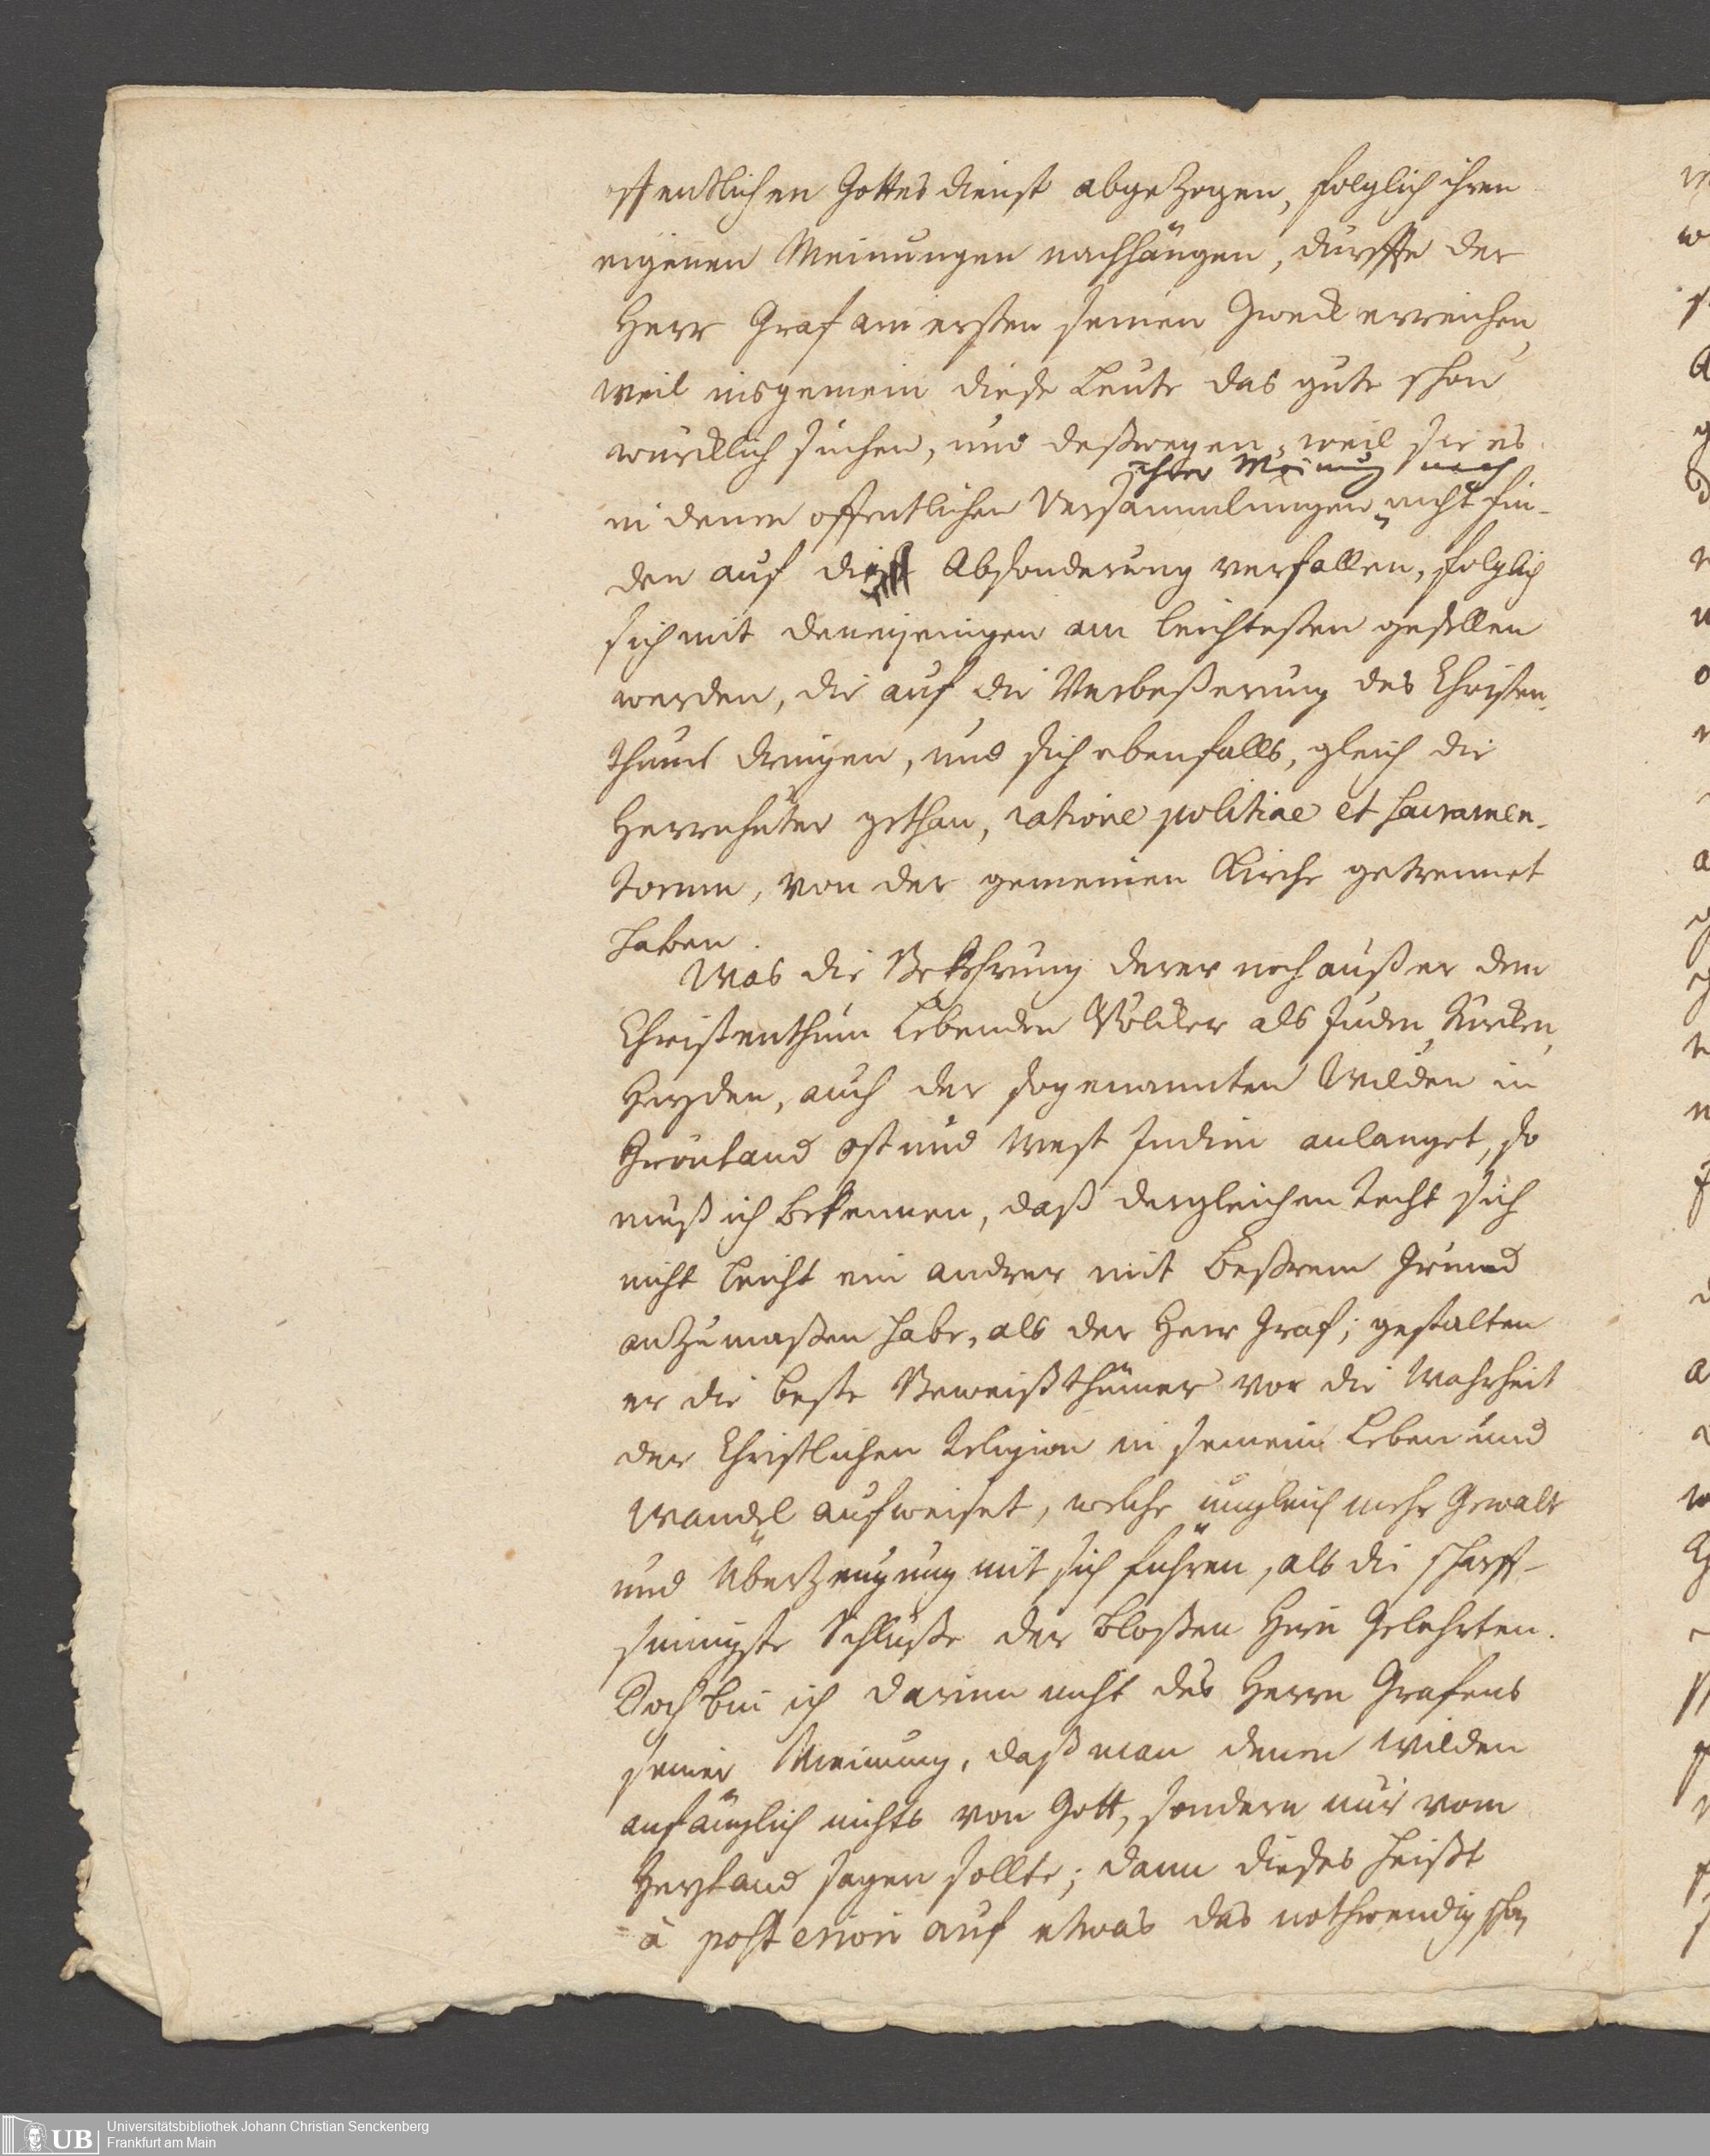 offentlichen Gottesdienst abgezogen, folglich ihren
eigenen Meinungen nachhängen, durffte der
Herr Graf am ersten seinen Zweck erreichen,
weil insgemein diese Leute das gute schon
würcklich suchen, und deßwegen, weil sie es
ihrer Meinung nach
in denen offentlichen Versammlungen nicht fin-
den auf die Absonderung verfallen, folglich
sich mit denenjenigen am leichtesten gesellen
werden, die auf die Verbeßerung des Christen-
thums dringen, und sich ebenfalls, gleich die
Herrnhuter gethan, ratione politiae et Sacramen-
torum, von der gemeinen Kirche getrennet
haben.
Was die Bekehrung derer noch außer dem
Christenthum Lebenden Völcker als Juden, Türcken,
Heyden, auch der sogenannten Wilden in
Grönland Ost und West Indien anlanget, so
muß ich bekennen, daß dergleichen recht sich
nicht leicht ein andrer mit beßrem Grund
anzumaßen habe, als der Herr Graf; gestalten
er die beste Beweißthümer vor die Wahrheit
der Christlichen Religion in seinem Leben und
Wandel aufweiset, welche ungleich mehr Gewalt
und Überzeugung mit sich führen, als die scharff-
sinnigste Schlüße der bloßen Hirn Gelehrten.
Doch bin ich darinn nicht des Herrn Grafens
seiner Meinung, daß man denen Wilden
anfänglich nichts von Gott, sondern nur vom
Heyland sagen sollte; dann dieses heißt
à posteriori auf etwas das nothwendig schon
Universitätsbibliothek Johann Christian Senckenberg
Frankfurt am Main
UB